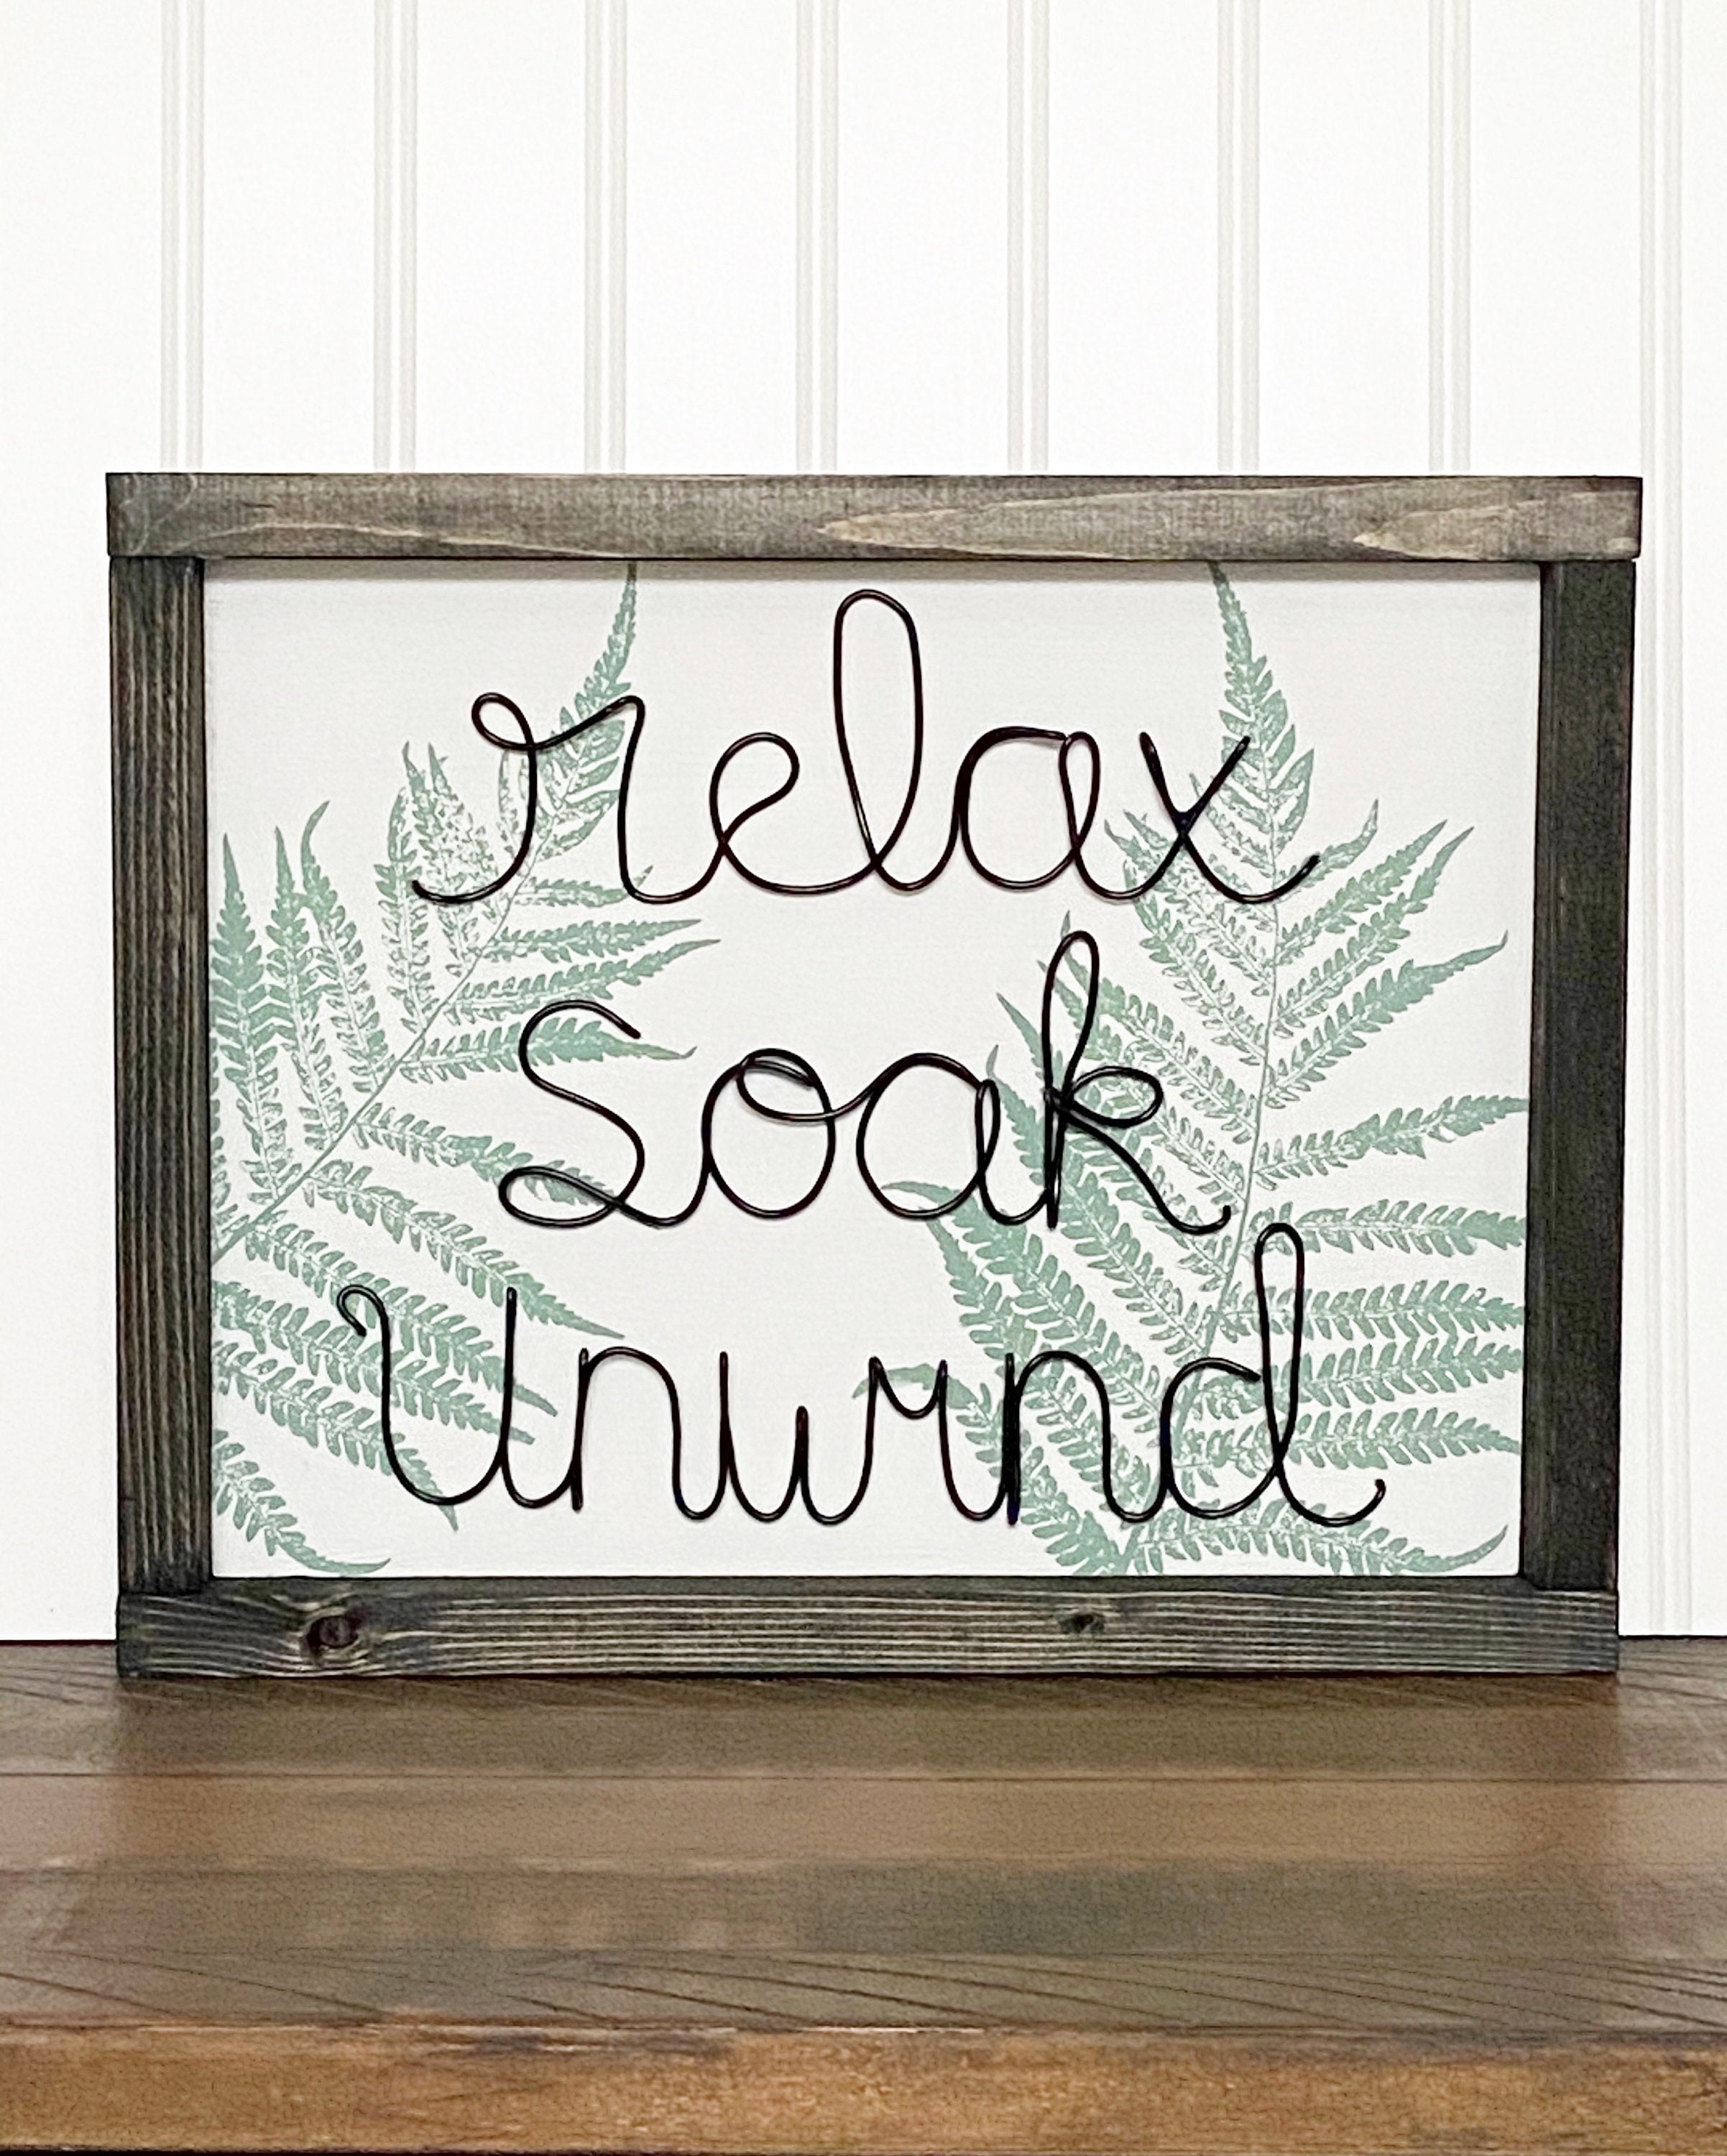 relax
Soak
Unwind